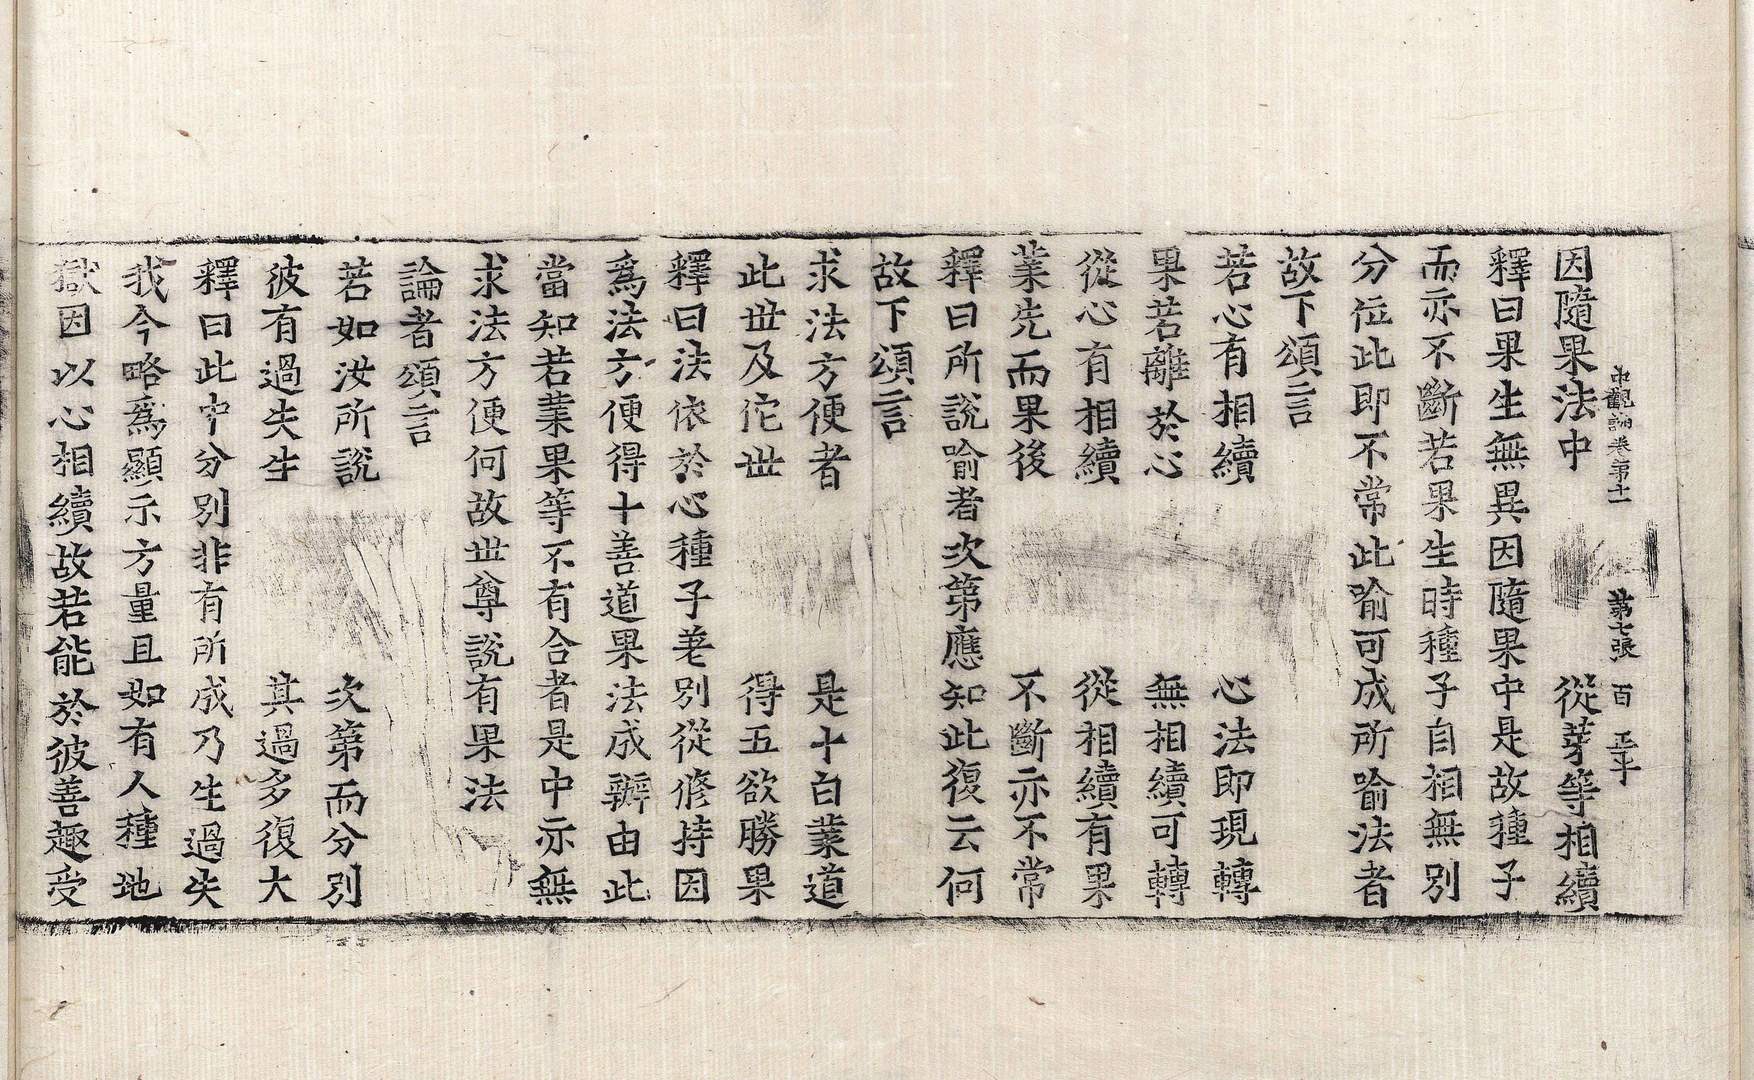 中觀論卷第十一 第七張 百
因隨果法中 從芽等相續
釋曰果生無異因隨果中是故種子
而亦不斷若果生時種子自相無別
分位此即不常此喻可成所喻法者
故下頌言
若心有相續 心法即現轉
果若離於心 無相續可轉
從心有相續 從相續有果
業先而果後 不斷亦不常
釋曰所說喻者次第應知此復云何
故下頌言
求法方便者 是十白業道
此世及佗世 得五欲勝果
釋曰法依於心種子差別從修持因
爲法方便得十善道果法成辦由此
當知若業果等不有合者是中亦無
求法方便何故世尊說有果法
論者頌言
若如汝所說 次第而分別
彼有過失生 其過多復大
釋曰此中分別非有所成乃生過失
我今略爲顯示方量且如有人種地
獄因以心相續故若能於彼善趣受